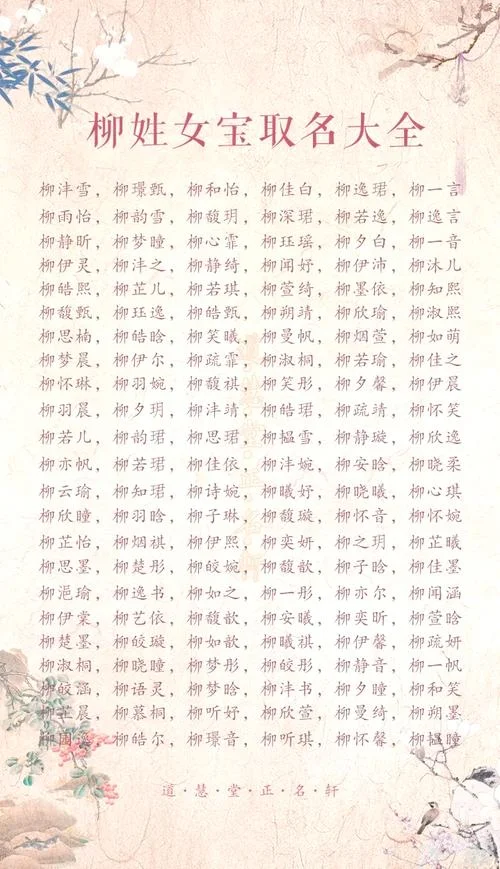 柳姓女宝取名大全
柳沣雪，柳璟甄，柳和怡，柳佳白，柳逸珺，柳一言
柳雨怡，柳韵雪，柳馥玥，柳深珺，柳若逸，柳逸言
柳静昕，柳梦瞳，柳心霏，柳珏瑶，柳夕白，柳一音
柳伊灵，柳沣之，柳静绮，柳闻妤，柳伊沛，柳沐儿
柳皓熙，柳芷儿，柳若琪，柳萱绮，柳墨依，柳知熙
柳馥甄，柳珏逸，柳皓甄，柳朔靖，柳欣瑜，柳淑熙
柳思楠，柳皓晗，柳笑曦，柳曼帆，柳烟萱，柳如萌
柳梦晨，柳伊尔，柳疏霏，柳淑桐，柳若瑜，柳佳之
柳怀琳，柳羽婉，柳馥祺，柳笑彤，柳夕馨，柳伊晨
柳羽晨，柳夕玥，柳沣靖，柳皓珺，柳疏靖，柳怀笑
柳若儿，柳韵珺，柳思珺，柳韫雪，柳静璇，柳欣逸
柳亦帆，柳若珺，柳佳依，柳沣婉，柳安晗，柳晓柔
柳云瑜，柳知珺，柳诗婉，柳曦妤，柳晓曦，柳心琪
柳欣瞳，柳羽晗，柳子琳，柳馥璇，柳怀音，柳怀婉
柳芷怡，柳烟祺，柳伊熙，柳奕妍，柳之玥，柳芷曦
柳思墨，柳楚彤，柳皎婉，柳馥歆，柳子晗，柳佳墨
柳浥瑜，柳逸书，柳如之，柳一彤，柳亦尔，柳闻涵
柳伊棠，柳艺依，柳馥歆，柳安曦，柳奕昕，柳萱晗
柳楚墨，柳皎璇，柳如歆，柳曦祺，柳伊馨，柳疏妍
柳淑桐，柳晓瞳，柳梦彤，柳皎彤，柳静音，柳一帆
柳皎涵，柳语灵，柳梦晗，柳沣书，柳夕瞳，柳和笑
晨，柳慕桐，柳听妤，柳欣萱，柳曼绮，柳朔墨
柳皓尔，柳璟音，柳听琪，柳怀馨，柳韫瞳
道·慧·堂·正·名·轩